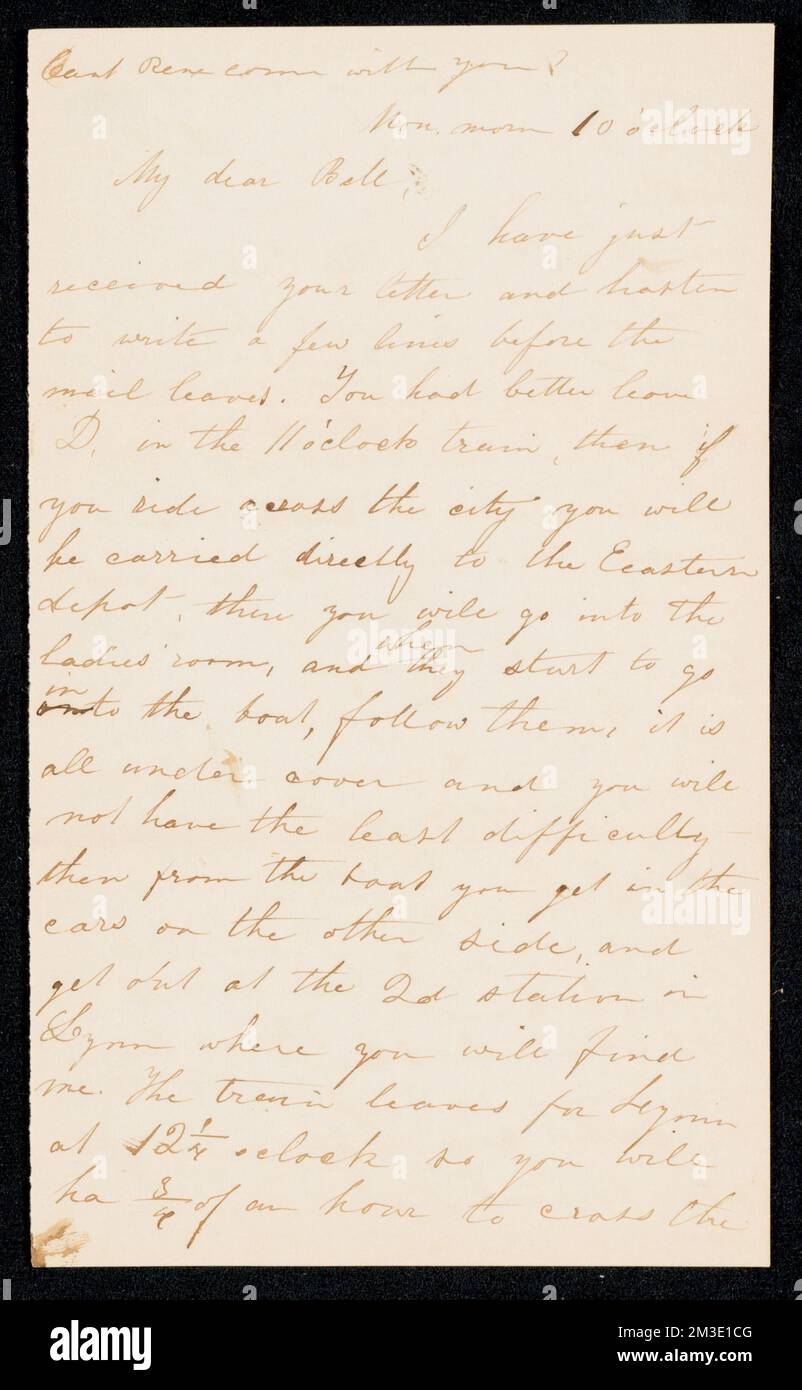 Cant Rene come with you?
Mon. morn 10 o'clock
My dear Bell,
I have just
received your letter and hasten
to write a few lines before the
mail leaves. You had better leave
D. in the 11 o'clock train, then if
you ride across the city you will
be carried directly to the Eeastern
depot, there you will go into the
ladies' room, and when they start to go
into the boat, follow them, it is
all under cover and you will
not have the least difficulty
then from the boat you get in the
cars on the other side, and
get out at the 2d station in
Lynn where you will find
me. The train leaves for Lynn
at 12 1/4 o'clock so you will
ha 3/4 of an hour to cross the
alamy
alamy
Image ID: 2M3E1CG
www.alamy.com